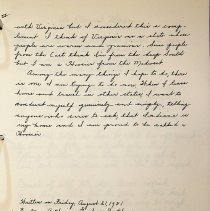 with Virginia but I considered this a comp-
liment. I think of Virginia as a state whose
people are warm and gracious. Some people
from the East think I'm from the deep South
but I am a Hoosier from the Midwest.
Among the many things I hope to do, there
is one I am trying to do now. When I leave
home and travel in other states I want to
conduct myself graciously and simply, telling
anyone who seems to ask that Indiana is
my home and I am proud to be called a
Hoosier.
Written on Friday, August 21, 1981